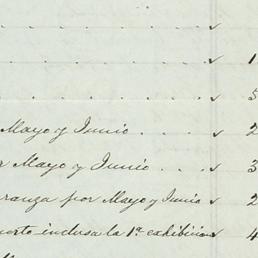 1
5
Mayo y Junio . . . . 2
r Mayo y Junio . . . 3
ranza por Mayo y Junio 2
uerto inclusa la 1ª exhibicion 4